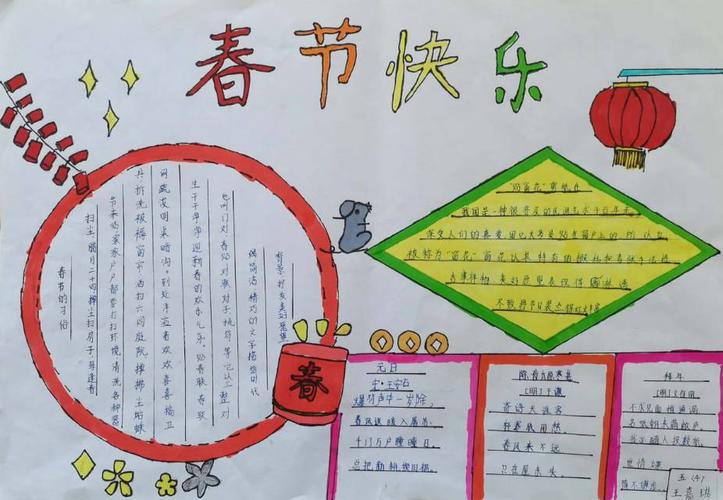 春节快乐
春节的习俗
扫尘：腊月二十四掸尘扫房子，每逢春
节来临，家家户户都要打扫环境，清洗各种器
具，拆洗被褥窗帘，洒扫六闾庭院，掸拂尘垢蛛
网，疏浚明渠暗沟。到处洋溢着欢欢喜喜搞卫
生、干干净净迎新春的欢乐气氛。贴春联：春联
也叫门对、春贴、对联、对子、桃符等，它以工整、对
偶、简洁、精巧的文字描绘时代
背景，抒发美好愿望
春
"贴窗花"剪纸在
我国是一种很普及的民间艺术，千百年来
深受人们的喜爱，因它大多是贴在窗户上的，所以也
被称为"窗花"。窗花以其特有的概括和夸张手法将
吉事祥物、美好愿望表现得
元日
宋·王安石
爆竹声中一岁除，
春风送暖入屠苏。
千门万户曈曈日，
总把新桃换旧符。
除夜太原寒甚
[明]于谦
寄语天涯客，
轻寒底用愁。
春风来不远，
只在屋东头。
拜年
[明]文征明
不求见面惟通谒，
名纸朝来满敝庐。
我亦随人投数纸，
世情嫌
简不嫌虚。
五(4)